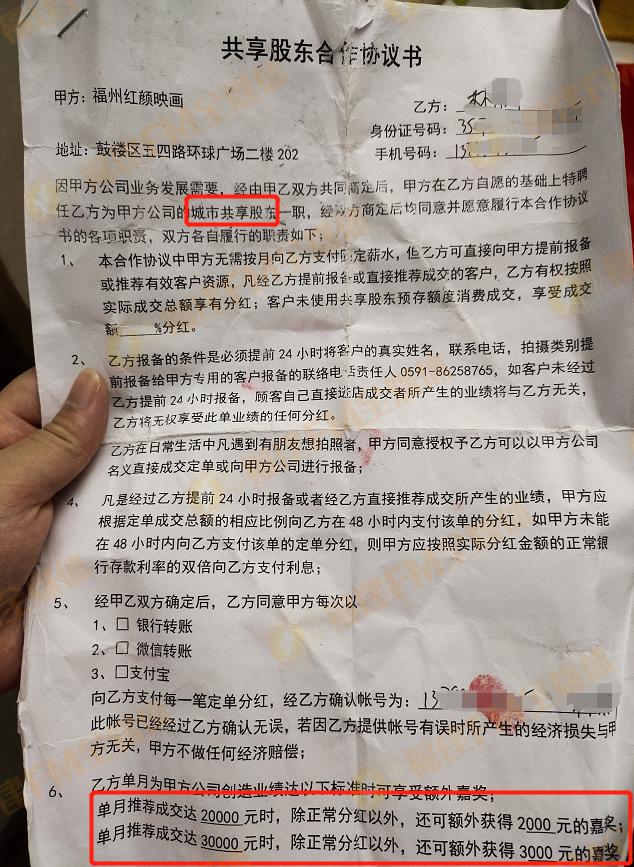 共享股东合作协议书
甲方：福州红颜映画
乙方：林
身份证号码：35
地址：鼓楼区五四路环球广场二楼202
手机号码：13
因甲方公司业务发展需要，经由甲乙双方共同商定后，甲方在乙方自愿的基础上特聘
任乙方为甲方公司的城市共享股东一职，经双方商定后均同意并愿意履行本合作协议
书的各项职责，双方各自履行的职责如下；
1、 本合作协议中甲方无需按月向乙方支付固定薪水，但乙方可直接向甲方提前报备
或推荐有效客户资源，凡经乙方提前报备或直接推荐成交的客户，乙方有权按照
实际成交总额享有分红；客户未使用共享股东预存额度消费成交，享受成交
额____%分红。
2、 乙方报备的条件是必须提前24小时将客户的真实姓名，联系电话，拍摄类别提
前报备给甲方专用的客户报备的联络电话责任人0591-86258765，如客户未经过
乙方提前24小时报备，顾客自己直接进店成交者所产生的业绩将与乙方无关，
乙方将无权享受此单业绩的任何分红。
乙方在日常生活中凡遇到有朋友想拍照者，甲方同意授权予乙方可以以甲方公司
名义直接成交定单或向甲方公司进行报备；
4、 凡是经过乙方提前24小时报备或者经乙方直接推荐成交所产生的业绩，甲方应
根据定单成交总额的相应比例向乙方在48小时内支付该单的分红，如甲方未能
在48小时内向乙方支付该单的定单分红，则甲方应按照实际分红金额的正常银
行存款利率的双倍向乙方支付利息；
5、 经甲乙双方确定后，乙方同意甲方每次以
1、☐ 银行转账
2、☐ 微信转账
3、☐支付宝
向乙方支付每一笔定单分红，经乙方确认帐号为：13
此帐号已经经过乙方确认无误，若因乙方提供帐号有误时所产生的经济损失与甲
方无关，甲方不做任何经济赔偿；
6、 乙方单月为甲方公司创造业绩达以下标准时可享受额外嘉奖；
单月推荐成交达20000元时，除正常分红以外，还可额外获得2000元的嘉奖；
单月推荐成交达30000元时，除正常分红以外，还可额外获得3000元的嘉奖